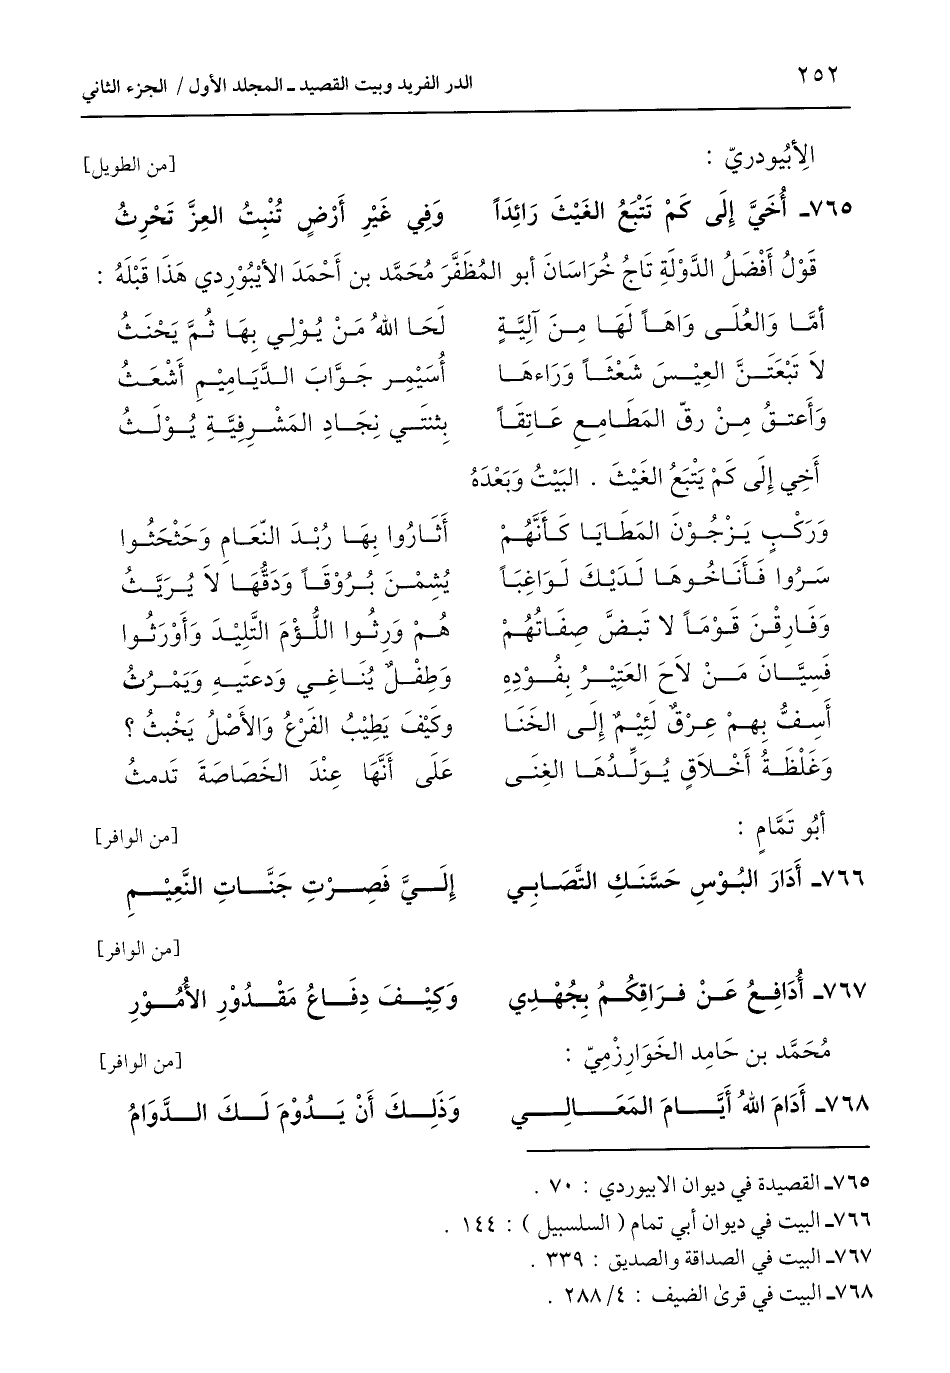 ٢٥٢ الدر الفريد وبيت القصيد ـ المجلد الأول / الجزء الثاني
الأَبْيُودريّ : [من الطويل]
٧٦٥ـ أُخَيَّ إِلَى كَمْ تَتْبَعُ الغَيْثَ رَائِدَاً وَفِي غَيْرِ أَرْضٍ تُنْبِتُ العِزَّ تَحْرِثُ
قَوْلُ أَفْضَلُ الدَّوْلَةِ تَاجُ خُرَاسَانَ أبو المُظَفَّرَ مُحَمَّد بن أَحْمَدَ الأَبْيُوْردي هَذَا قَبْلَهُ :
أَمَّا وَالعُلَى وَاهَاً لَهَا مِنَ آلِيَّةٍ لَحَا اللهُ مَنْ يُوْلِي بِهَا ثُمَّ يَحْنَثُ
لَا تَبْعَثَنَّ العِيْسَ شَعْثَاً وَرَاءهَا أُسَيْمِر جَوَّابَ الدَّيَامِيْمِ أَشْعَثُ
وَأَعتقُ مِنْ رقّ المَطَامِعِ عَاتِقَاً بِثنَتَي نِجَادِ المَشْرفِيَّةِ يُوْلَثُ
أَخِي إِلَى كَمْ يَتْبَعُ الغَيْثَ . البَيْتُ وَبَعْدَهُ
وَرَكْبٍ يَزْجُوْنَ المَطَايَا كَأَنَّهُمْ أَثَارُوا بِهَا رُبْدَ النَّعَامِ وَحَثْحَثُوا
سَرُوا فَأَنَاخُوهَا لَدَيْكَ لَوَاغِبَاً يُشْمْنَ بُرُوْقَاً وَدَقُّهَا لاَ يُرَيَّثُ
وَفَارِقْنَ قَوْمَاً لا تَبَضَّ صِفَاتُهُمْ هُمْ وَرِثُوا اللُّؤْمَ التَّلِيْدَ وَأَوْرَثُوا
فَسِيَّانَ مَنْ لاَحَ العَتِيْرُ بِفُوْدِهِ وَطِفْلٌ يُنَاغِي وَدعتَيهِ وَيَمْرُثُ
أَسِفُّ بِهِمْ عِرْقٌ لَئِيْمٌ إِلَى الخَنَا وكَيْفَ يَطِيْبُ الفَرْعُ وَالأَصْلُ يَخْبثُ ؟
وَغَلْظَةُ أَخْلاَقٍ يُوَلِّدُهَا الغِنَى عَلَى أَنَّهَا عِنْدَ الخَصَاصَةَ تَدمثُ
أَبُو تَمَّامٍ : [من الوافر]
٧٦٦ـ أَدَارَ البُوْسِ حَسَّنَكِ التَّصَابِي إِلَيَّ فَصِرْتِ جَنَّاتِ النَّعِيْمِ
[من الوافر]
٧٦٧ـ أُدَافِعُ عَنْ فرَاقِكُمُ بِجُهْدِي وَكَيْفَ دِفَاعُ مَقْدُوْرِ الأُمُوْرِ
مُحَمَّد بن حَامِد الخَوَارِزْمِيّ : [من الوافر]
٧٦٨ـ أَدَامَ اللهُ أَيَّامَ المَعَالِي وَذَلِكَ أَنْ يَدُوْمَ لَكَ الدَّوَامُ
٧٦٥ـ القصيدة في ديوان الابيوردي : ٧٠ .
٧٦٦ـ البيت في ديوان أبي تمام ( السلسبيل ) : ١٤٤ .
٧٦٧ـ البيت في الصداقة والصديق : ٣٣٩ .
٧٦٨ـ البيت في قرىٰ الضيف : ٤/ ٢٨٨ .